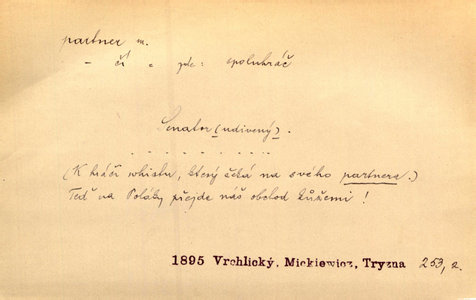 partner m.
- čí = zde: spoluhráč
Senator (udivený).
. . . . . . . . .
(K hráči whistu, který čeká na svého partnera.)
Teď na Poláky přejde náš obchod kůžemi!
1895 Vrchlický, Mickiewicz, Tryzna 253, 2.